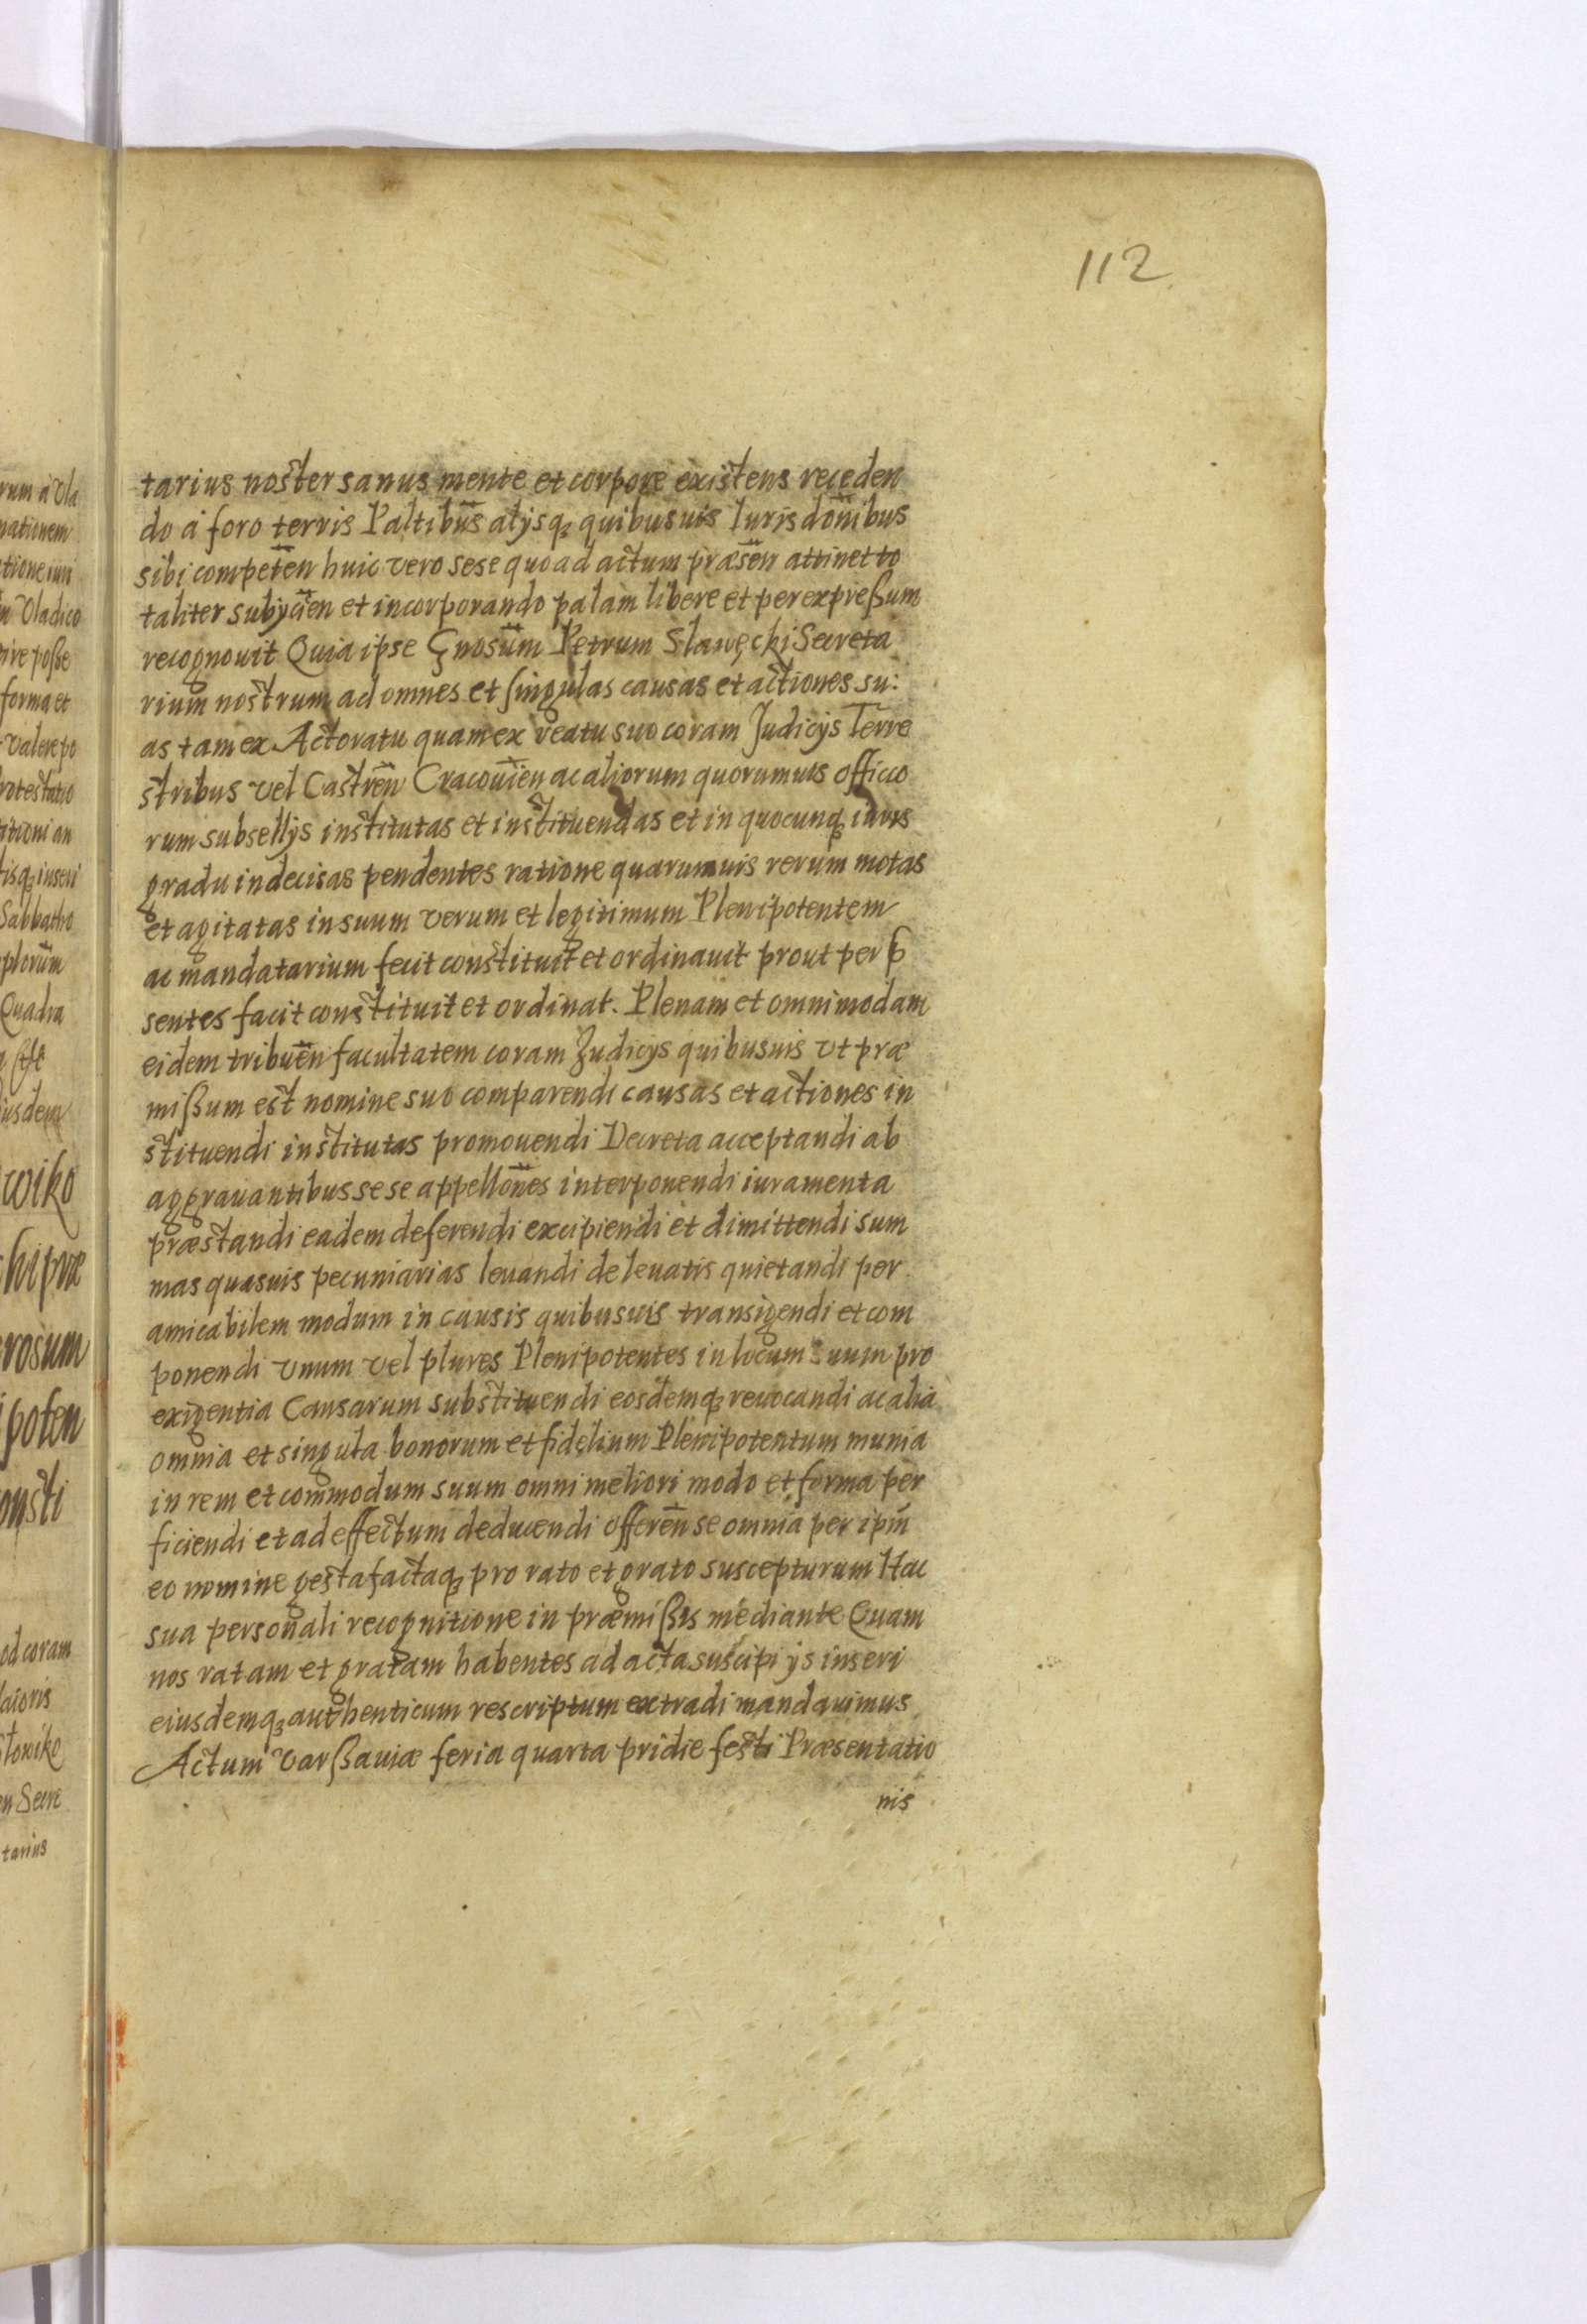 112
tarius noster sanus mente et corpore existens receden
do a foro terris Paltibus alijsq; quibusuis Iuris donibus
sibi competen huic vero sese quoad actum præsen attinet to
taliter subijcien et incorporando palam libere et per expreßum
recognouit Quia ipse Gnosum Petrum Slawęcki Secreta
rium nostrum ad omnes et singulas causas et actiones su:
as tam ex Actoratu quam ex reatu suo coram Judicijs Terre
stribus vel Castren Cracouien ac aliorum quorumuis officio
rum subsellijs institutas et instituendas et in quocunq; iuris
gradu indecisas pendentes ratione quarumuis rerum motas
et agitatas in suum verum et legitimum Plenipotentem
ac mandatarium fecit constituit et ordinauit prout per p
sentes facit constituit et ordinat. Plenam et omnimodam
eidem tribuen facultatem coram Judicijs quibusuis vt præ
mißum est nomine suo comparendi causas et actiones in
stituendi institutas promouendi Decreta acceptandi ab
aggrauantibus sese appellones interponendi iuramenta
præstandi eadem deferendi excipiendi et dimittendi sum
mas quasuis pecuniarias leuandi de leuatis quietandi per
amicabilem modum in causis quibusuis transigendi et com
ponendi vnum vel plures Plenipotentes in locum suum pro
exigentia Causarum substituendi eosdemq; reuocandi ac alia
omnia et singula bonorum et fidelium Plenipotentum munia
in rem et commodum suum omni meliori modo et forma per
ficiendi et ad effectum deducendi offeren se omnia per ipm
eo nomine gesta factaq; pro rato et grato suscepturum Hac
sua personali recognitione in præmißis mediante Quam
nos ratam et gratam habentes ad acta suscipi ijs inseri
eiusdemq; authenticum rescriptum extradi mandauimus
Actum Varßauiæ feria quarta pridie festi Præsentatio
nis